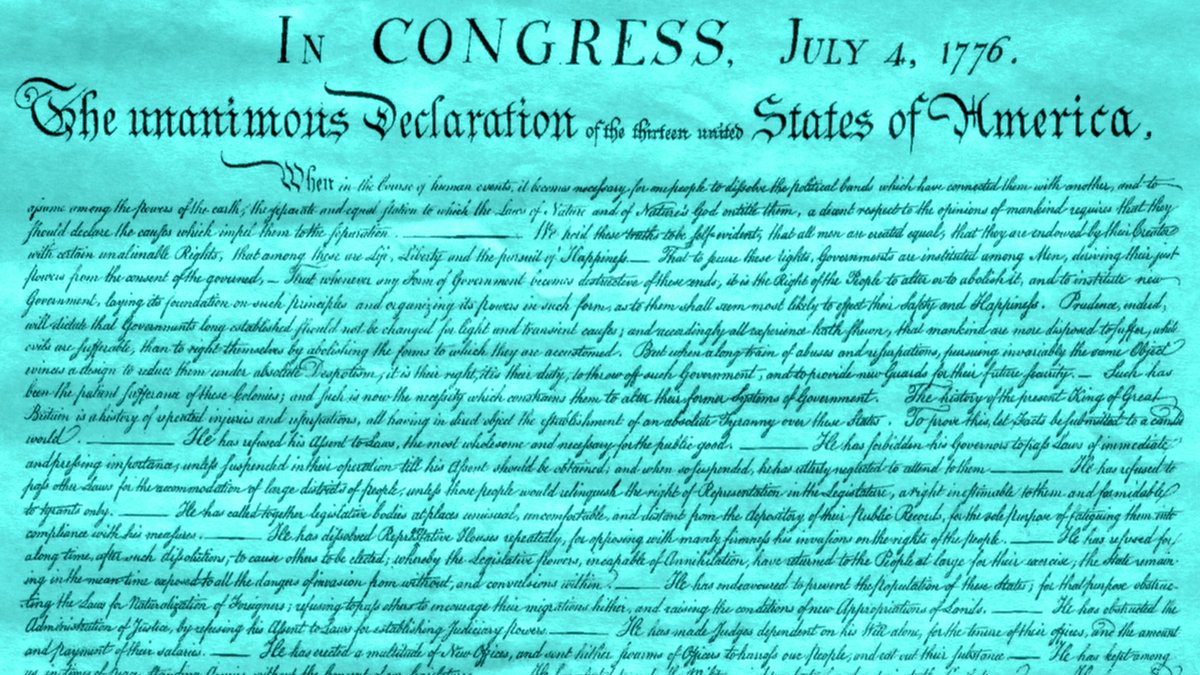 IN CONGRESS, JULY 4, 1776.
The unanimous Declaration of the thirteen united States of America,
When in the Course of human events, it becomes necessary for one people to dissolve the political bands which have connected them with another, and to
assume among the powers of the earth, the separate and equal station to which the Laws of Nature and of Nature's God entitle them, a decent respect to the opinions of mankind requires that they
should declare the causes which impel them to the separation. ——— We hold these truths to be self-evident, that all men are created equal, that they are endowed by their Creator
with certain unalienable Rights, that among these are Life, Liberty and the pursuit of Happiness.— That to secure these rights, Governments are instituted among Men, deriving their just
powers from the consent of the governed, — That whenever any Form of Government becomes destructive of these ends, it is the Right of the People to alter or to abolish it, and to institute new
Government, laying its foundation on such principles and organizing its powers in such form, as to them shall seem most likely to effect their Safety and Happiness. Prudence, indeed,
will dictate that Governments long established should not be changed for light and transient causes; and accordingly all experience hath shewn, that mankind are more disposed to suffer, while
evils are sufferable, than to right themselves by abolishing the forms to which they are accustomed. But when a long train of abuses and usurpations, pursuing invariably the same Object
evinces a design to reduce them under absolute Despotism, it is their right, it is their duty, to throw off such Government, and to provide new Guards for their future security. — Such has
been the patient sufferance of these Colonies; and such is now the necessity which constrains them to alter their former Systems of Government. The history of the present King of Great
Britain is a history of repeated injuries and usurpations, all having in direct object the establishment of an absolute Tyranny over these States. To prove this, let Facts be submitted to a candid
world. ——— He has refused his Assent to Laws, the most wholesome and necessary for the public good. ——— He has forbidden his Governors to pass Laws of immediate
and pressing importance, unless suspended in their operation till his Assent should be obtained; and when so suspended, he has utterly neglected to attend to them. ——— He has refused to
pass other Laws for the accommodation of large districts of people, unless those people would relinquish the right of Representation in the Legislature, a right inestimable to them and formidable
to tyrants only. ——— He has called together legislative bodies at places unusual, uncomfortable, and distant from the depository of their Public Records, for the sole purpose of fatiguing them into
compliance with his measures. ——— He has dissolved Representative Houses repeatedly, for opposing with manly firmness his invasions on the rights of the people. ——— He has refused for
a long time, after such dissolutions, to cause others to be elected; whereby the Legislative powers, incapable of Annihilation, have returned to the People at large for their exercise; the State remain-
ing in the mean time exposed to all the dangers of invasion from without, and convulsions within. ——— He has endeavoured to prevent the population of these States; for that purpose obstruc-
ting the Laws for Naturalization of Foreigners; refusing to pass others to encourage their migrations hither, and raising the conditions of new Appropriations of Lands. ——— He has obstructed the
Administration of Justice, by refusing his Assent to Laws for establishing Judiciary powers. ——— He has made Judges dependent on his Will alone, for the tenure of their offices, and the amount
and payment of their salaries. ——— He has erected a multitude of New Offices, and sent hither swarms of Officers to harass our people, and eat out their substance. ——— He has kept among
us, in times of peace, Standing Armies without the